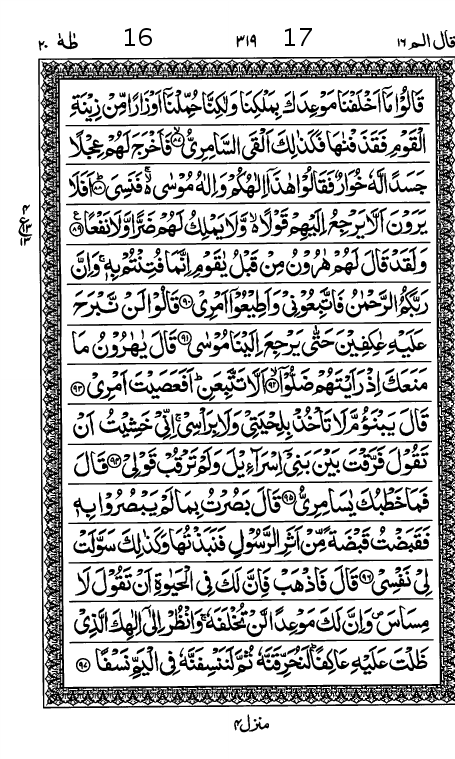 قال الم ١٦ 17 ٣١٩ 16 طٰهٰ ٢٠
قَالُوْا مَاۤ اَخْلَفْنَا مَوْعِدَكَ بِمَلْكِنَا وَلٰكِنَّا حُمِّلْنَاۤ اَوْزَارًا مِّنْ زِیْنَةِ
الْقَوْمِ فَقَذَفْنٰهَا فَكَذٰلِكَ اَلْقَی السَّامِرِیُّۙ۸۷ فَاَخْرَجَ لَهُمْ عِجْلًا
جَسَدًا لَّهٗ خُوَارٌ فَقَالُوْا هٰذَاۤ اِلٰهُكُمْ وَاِلٰهُ مُوْسٰی ۬ فَنَسِیَؕ۸۸ اَفَلَا
یَرَوْنَ اَلَّا یَرْجِعُ اِلَیْهِمْ قَوْلًا ۙ۬ وَّلَا یَمْلِكُ لَهُمْ ضَرًّا وَّلَا نَفْعًا۠۸۹
ع
۴
۱۳
۱۳
وَلَقَدْ قَالَ لَهُمْ هٰرُوْنُ مِنْ قَبْلُ یٰقَوْمِ اِنَّمَا فُتِنْتُمْ بِهٖۚ وَاِنَّ
رَبَّكُمُ الرَّحْمٰنُ فَاتَّبِعُوْنِیْ وَاَطِیْعُوْۤا اَمْرِیْ۹۰ قَالُوْا لَنْ نَّبْرَحَ
عَلَیْهِ عٰكِفِیْنَ حَتّٰی یَرْجِعَ اِلَیْنَا مُوْسٰی۹۱ قَالَ یٰهٰرُوْنُ مَا
مَنَعَكَ اِذْ رَاَیْتَهُمْ ضَلُّوْۤاۙ۹۲ اَلَّا تَتَّبِعَنِؕ اَفَعَصَیْتَ اَمْرِیْ۹۳
قَالَ یَبْنَؤُمَّ لَا تَاْخُذْ بِلِحْیَتِیْ وَلَا بِرَاْسِیْۚ اِنِّیْ خَشِیْتُ اَنْ
تَقُوْلَ فَرَّقْتَ بَیْنَ بَنِیْۤ اِسْرَآءِیْلَ وَلَمْ تَرْقُبْ قَوْلِیْ۹۴ قَالَ
فَمَا خَطْبُكَ یٰسَامِرِیُّ۹۵ قَالَ بَصُرْتُ بِمَا لَمْ یَبْصُرُوْا بِهٖ
فَقَبَضْتُ قَبْضَةً مِّنْ اَثَرِ الرَّسُوْلِ فَنَبَذْتُهَا وَكَذٰلِكَ سَوَّلَتْ
لِیْ نَفْسِیْ۹۶ قَالَ فَاذْهَبْ فَاِنَّ لَكَ فِی الْحَیٰوةِ اَنْ تَقُوْلَ لَا
مِسَاسَ۪ وَاِنَّ لَكَ مَوْعِدًا لَّنْ تُخْلَفَهٗۚ وَانْظُرْ اِلٰۤی اِلٰهِكَ الَّذِیْ
ظَلْتَ عَلَیْهِ عَاكِفًاؕ لَنُحَرِّقَنَّهٗ ثُمَّ لَنَنْسِفَنَّهٗ فِی الْیَمِّ نَسْفًا۹۷
منزل ۴